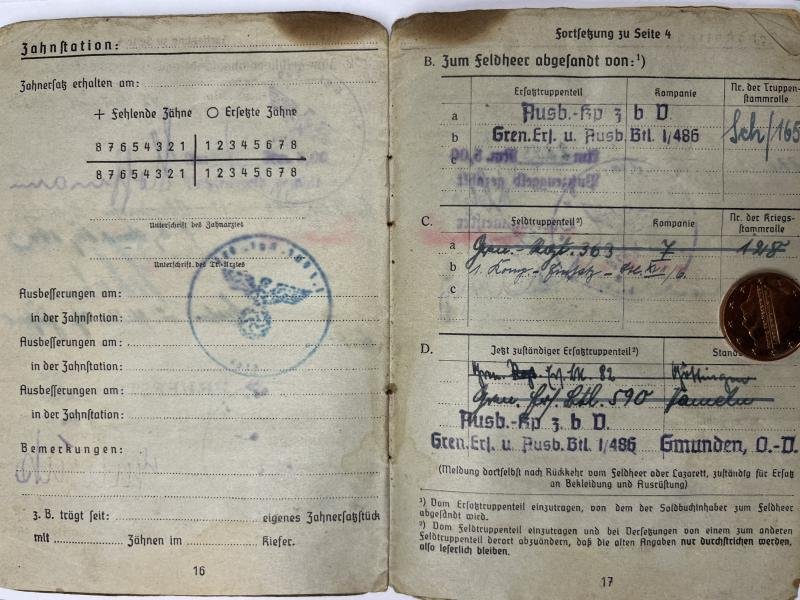 Zahnstation:
Zahnersatz erhalten am:
+ Fehlende Zähne O Ersetzte Zähne
8 7 6 5 4 3 2 1 | 1 2 3 4 5 6 7 8
8 7 6 5 4 3 2 1 | 1 2 3 4 5 6 7 8
Unterschrift des Zahnarztes
Unterschrift des Tr.-Arztes
Ausbesserungen am:
in der Zahnstation:
Ausbesserungen am:
in der Zahnstation:
Ausbesserungen am:
in der Zahnstation:
Bemerkungen:
z. B. trägt seit: eigenes Zahnersatzstück
mit Zähnen im Kiefer.
16
Fortsetzung zu Seite 4
B. Zum Feldheer abgesandt von:¹)
Ersatztruppenteil Kompanie Nr. der Truppen-
stammrolle
a Ausb.-Kp z b V.
b Gren.Ers. u. Ausb.Btl. I/486 Sch/165
c
C. Feldtruppenteil²) Kompanie Nr. der Kriegs-
stammrolle
a Gren. 363 7 128
b 1.
c
D. Jetzt zuständiger Ersatztruppenteil²) Stand
82 Göttingen
Gren. Ers. Btl. 590 Hameln
Ausb.-Kp. z. b V.
Gren.Ers. u. Ausb. Btl. I/486 Gmunden, O.-D.
(Meldung dortselbst nach Rückkehr vom Feldheer oder Lazarett, zuständig für Ersatz
an Bekleidung und Ausrüstung)
¹) Vom Ersatztruppenteil einzutragen, von dem der Soldbuchinhaber zum Feldheer
abgesandt wird.
²) Vom Feldtruppenteil einzutragen und bei Versetzungen von einem zum anderen
Feldtruppenteil derart abzuändern, daß die alten Angaben nur durchstrichen werden,
also leserlich bleiben.
17